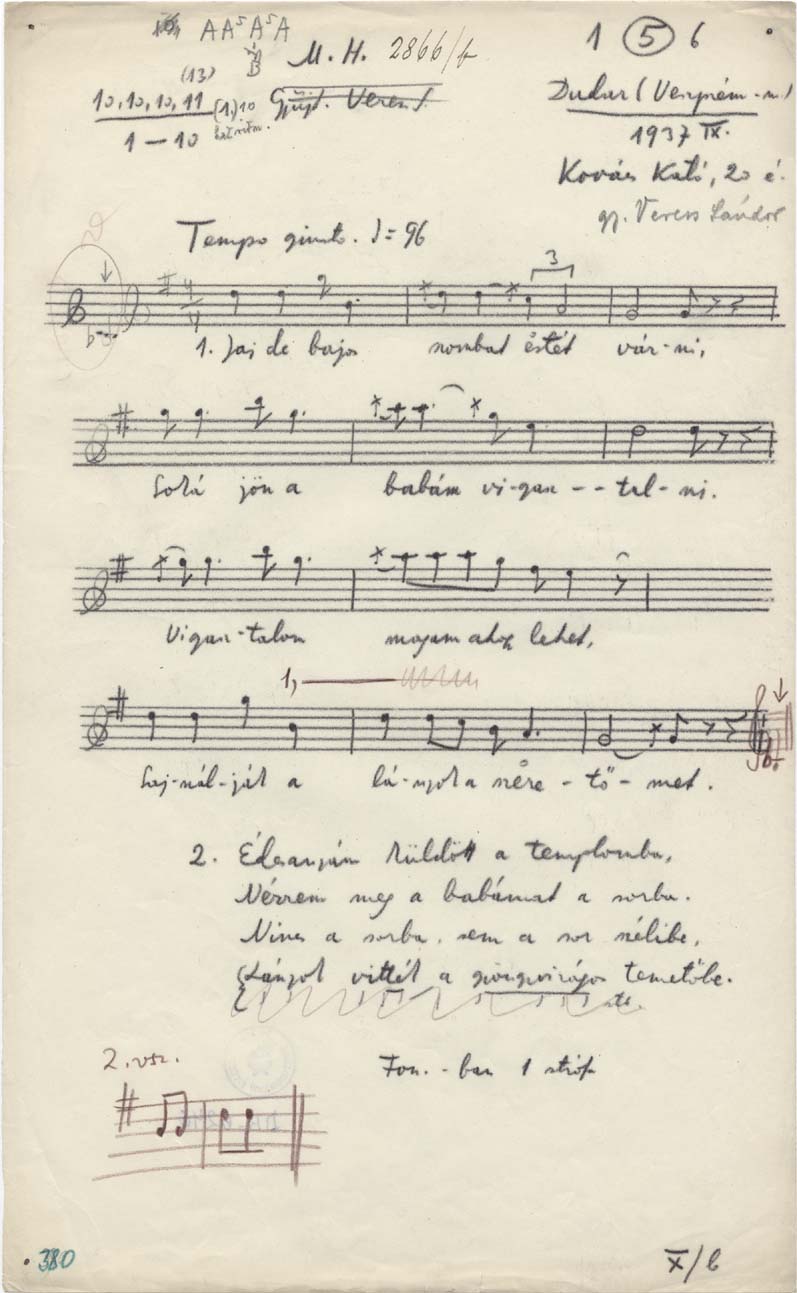 AA⁵A⁵A
B
M. H. 2866/b
1 5 6
(13)
10, 10, 10, 11
1 — 10
(1,) 10
Gyűjt. Veress
Dudar (Veszprém-m.)
1937 IX.
Kovács Kató, 20 é.
gy. Veress Sándor
Tempo giusto. ♩= 96
3
1. Jaj de bajos szombat estét vár-ni,
Hozzá jön a babám vi-gasz--tal-ni.
Vigasz-talom magam ahogy lehet,
Saj-nál-ják a lá-nyok a szere-tő-met.
1,
2. Édesanyám küldött a templomba,
Nézzem meg a babámat a sorba.
Nincs a sorba, sem a sor szélibe,
Lányok vitték a gyöngyvirágos temetőbe.
2. vsz.
Fon.-ban 1 strófa
380
X/b